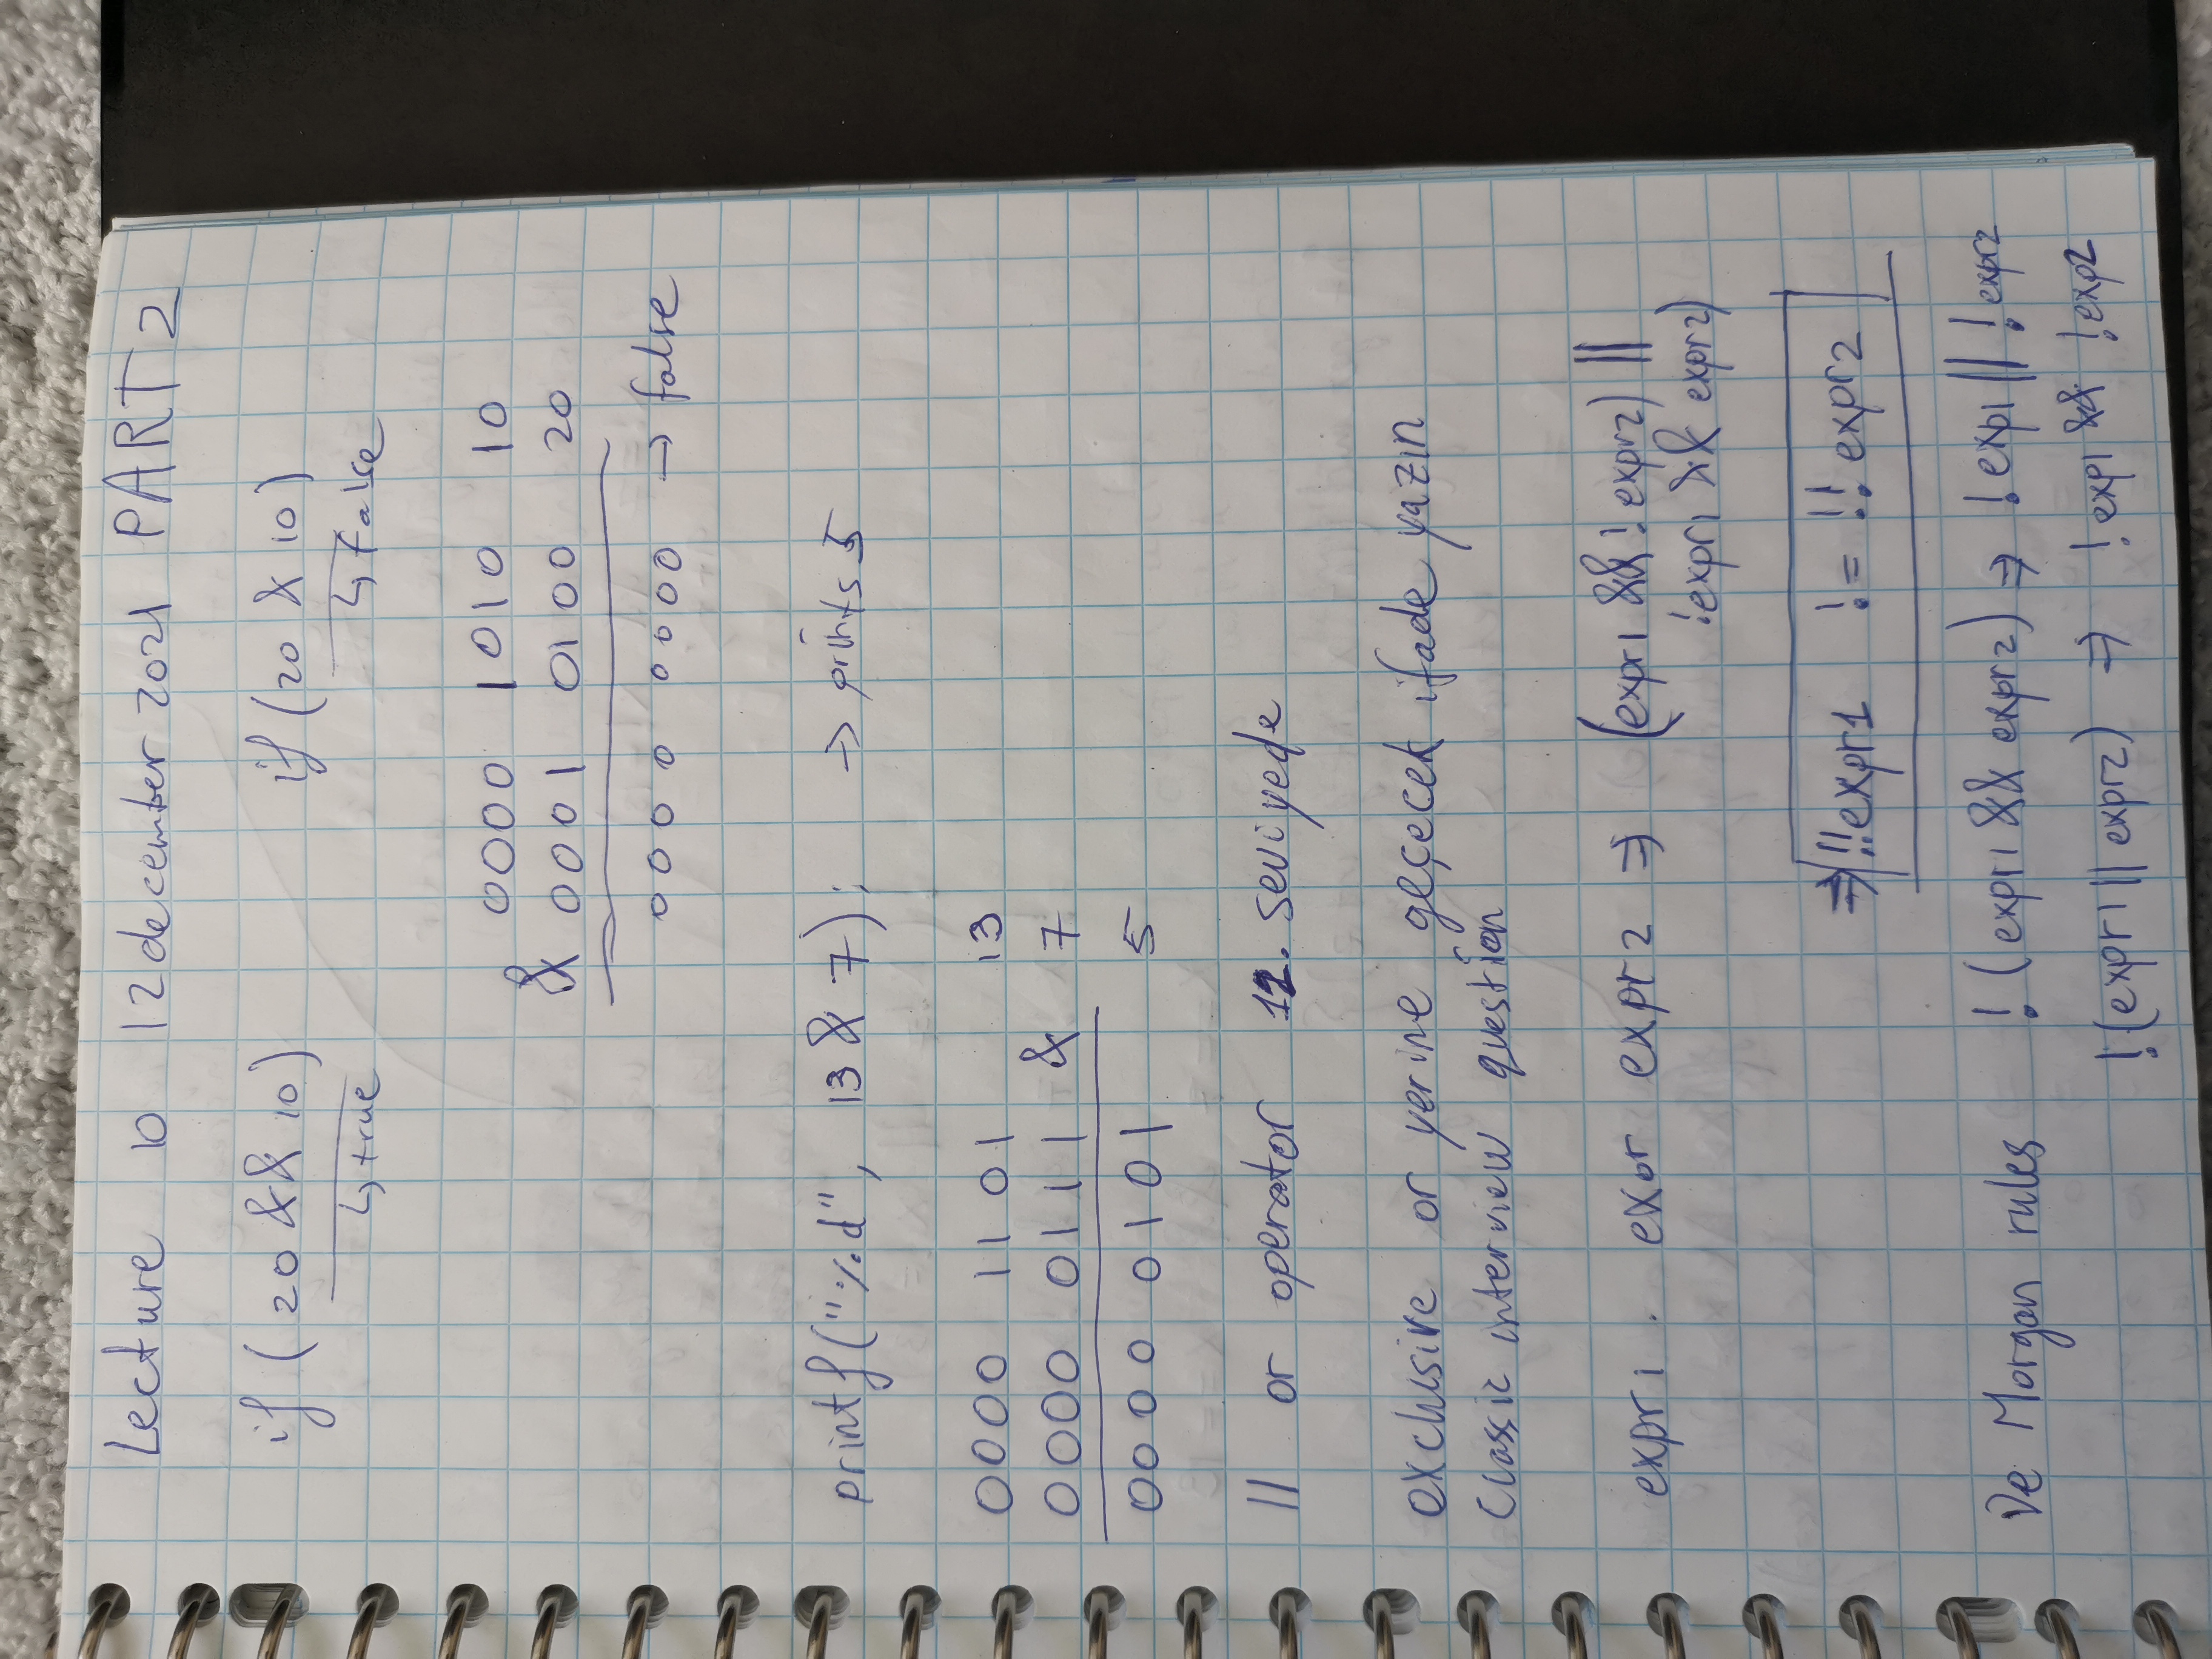 Lecture 10 12 december 2021 PART 2
if (20 && 10) if (20 & 10)
↳ true ↳ false
0000 1010 10
& 0001 0100 20
0000 0000 → false
printf("%d", 13 & 7); → prints 5
0000 1101 13
0000 0111 & 7
0000 0101 5
|| or operator 12. seviyede
exclusive or yerine geçecek ifade yazın
classic interview question
expr1 . exor expr2 ⇒ (expr1 && !expr2) ||
!expr1 && expr2)
⇒ !!expr1 != !!expr2
De Morgan rules !(expr1 && expr2) ⇒ !exp1 || !expr2
!(expr1 || expr2) ⇒ !exp1 && !exp2